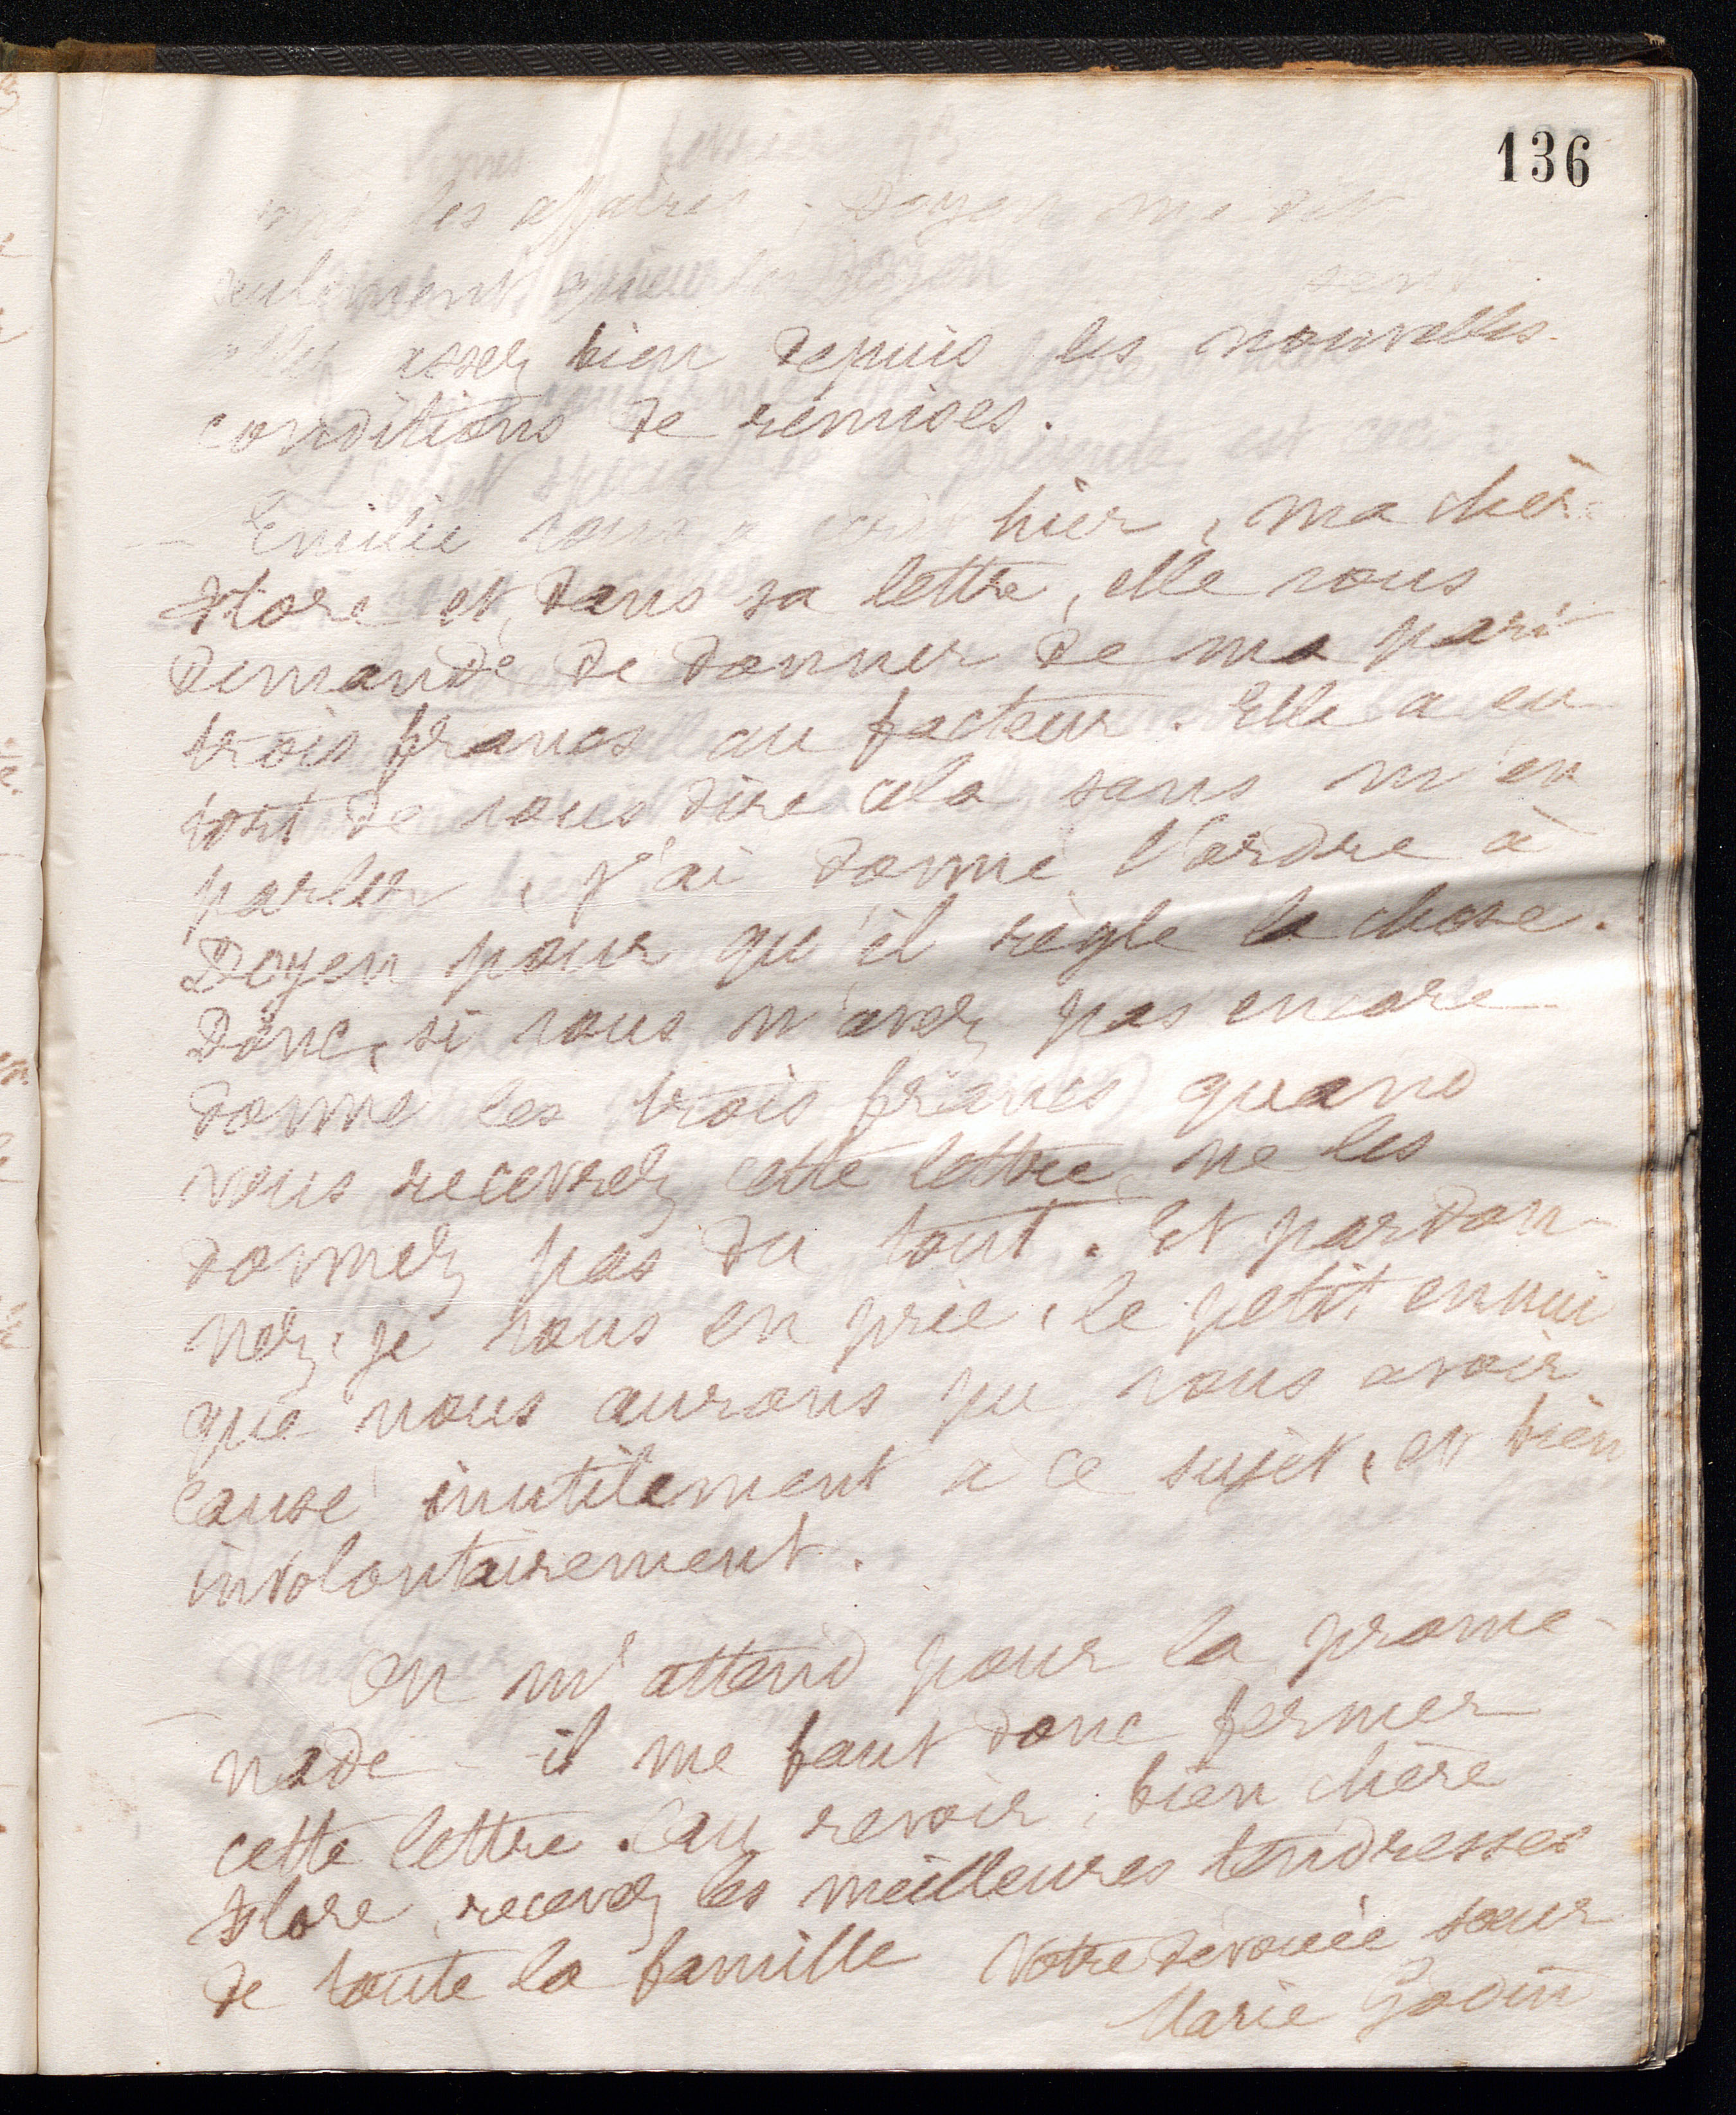 136
les affaires. Doyen me dit
seulement que
assez bien depuis les nouvelles
conditions de remises.
Emilie vous a hier, ma chère
Flore et, dans sa lettre, elle vous
demande de donner de ma part
trois francs au facteur. Elle a eu
tort de vous dire cela sans m'en
parler, j'ai donné l'ordre à
Doyen pour qu'il règle la chose.
Donc, si vous n'avez pas encore
donné les trois francs quand
vous recevrez cette lettre, ne les
donnez pas du tout. Et pardon-
nez, je vous en prie, le petit ennui
que nous aurons pu vous avoir
causé inutilement à ce sujet, et bien
involontairement.
On m'attend pour la prome-
nade - il me faut donc fermer
cette lettre. Au revoir, bien chère
Flore, recevez les meilleures tendresses
de toute la famille Votre dévouée sœur
Marie Godin